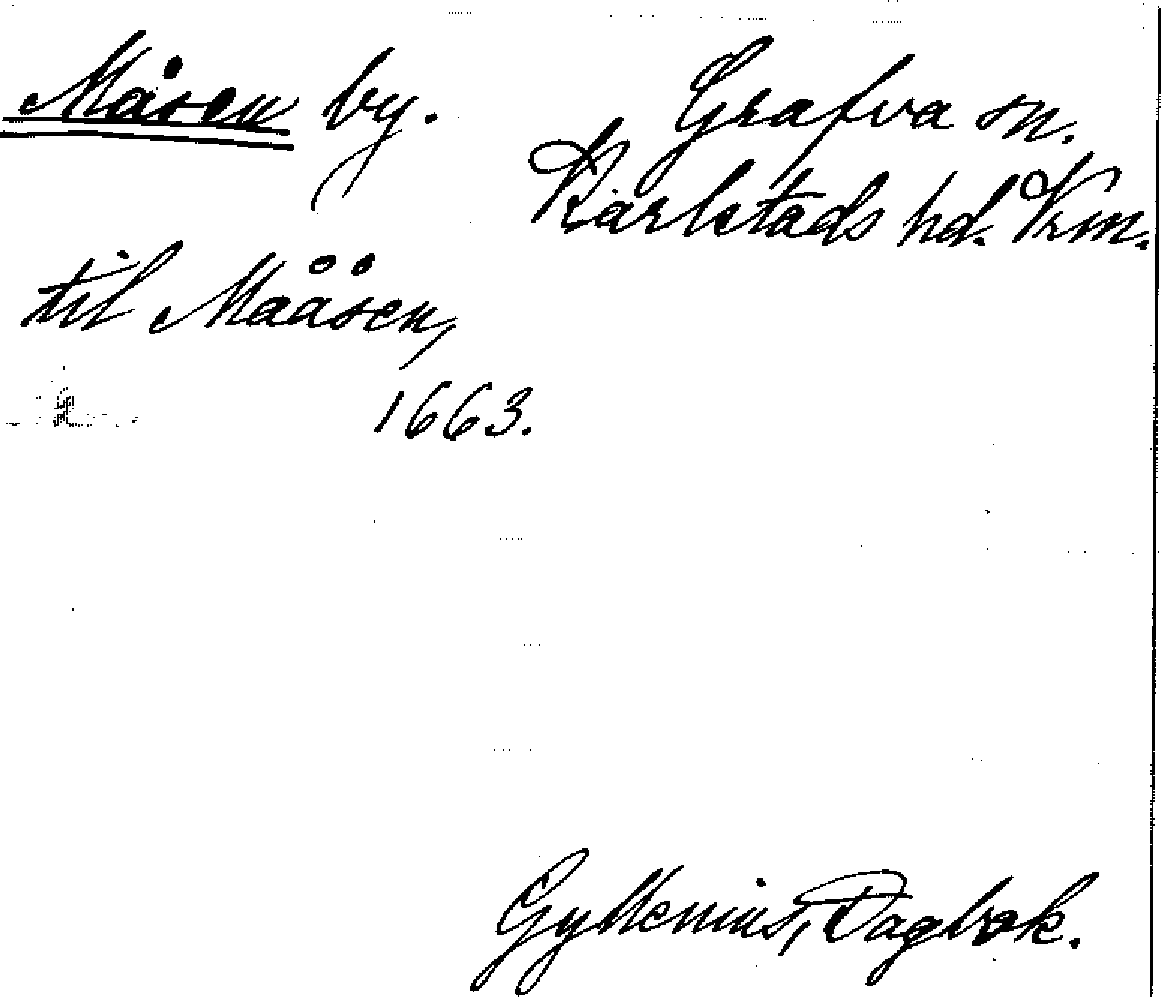 Måsen by.
Grafva sn.
Karlstads hd. Vrm.
til Mååsen,
1663.
Gyllenius, Dagbok.